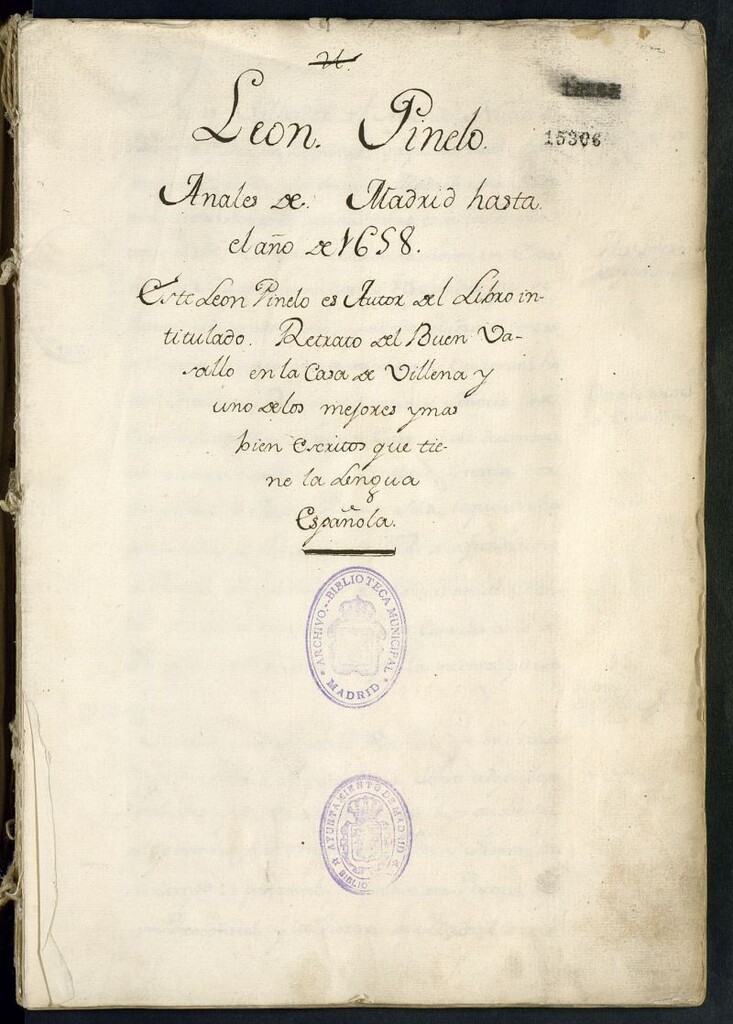 Leon. Pinelo.
15306
Anales de. Madrid hasta.
el año de 1658.
Este Leon Pinelo es Autor del Libro in-
titulado. Retrato del Buen Va-
sallo en la Casa de Villena y
uno de los mejores y mas
bien escritos que tie-
ne la Lengua
Española.
ARCHIVO.-BIBLIOTECA MUNICIPAL
MADRID
AYUNTAMIENTO DE MADRID